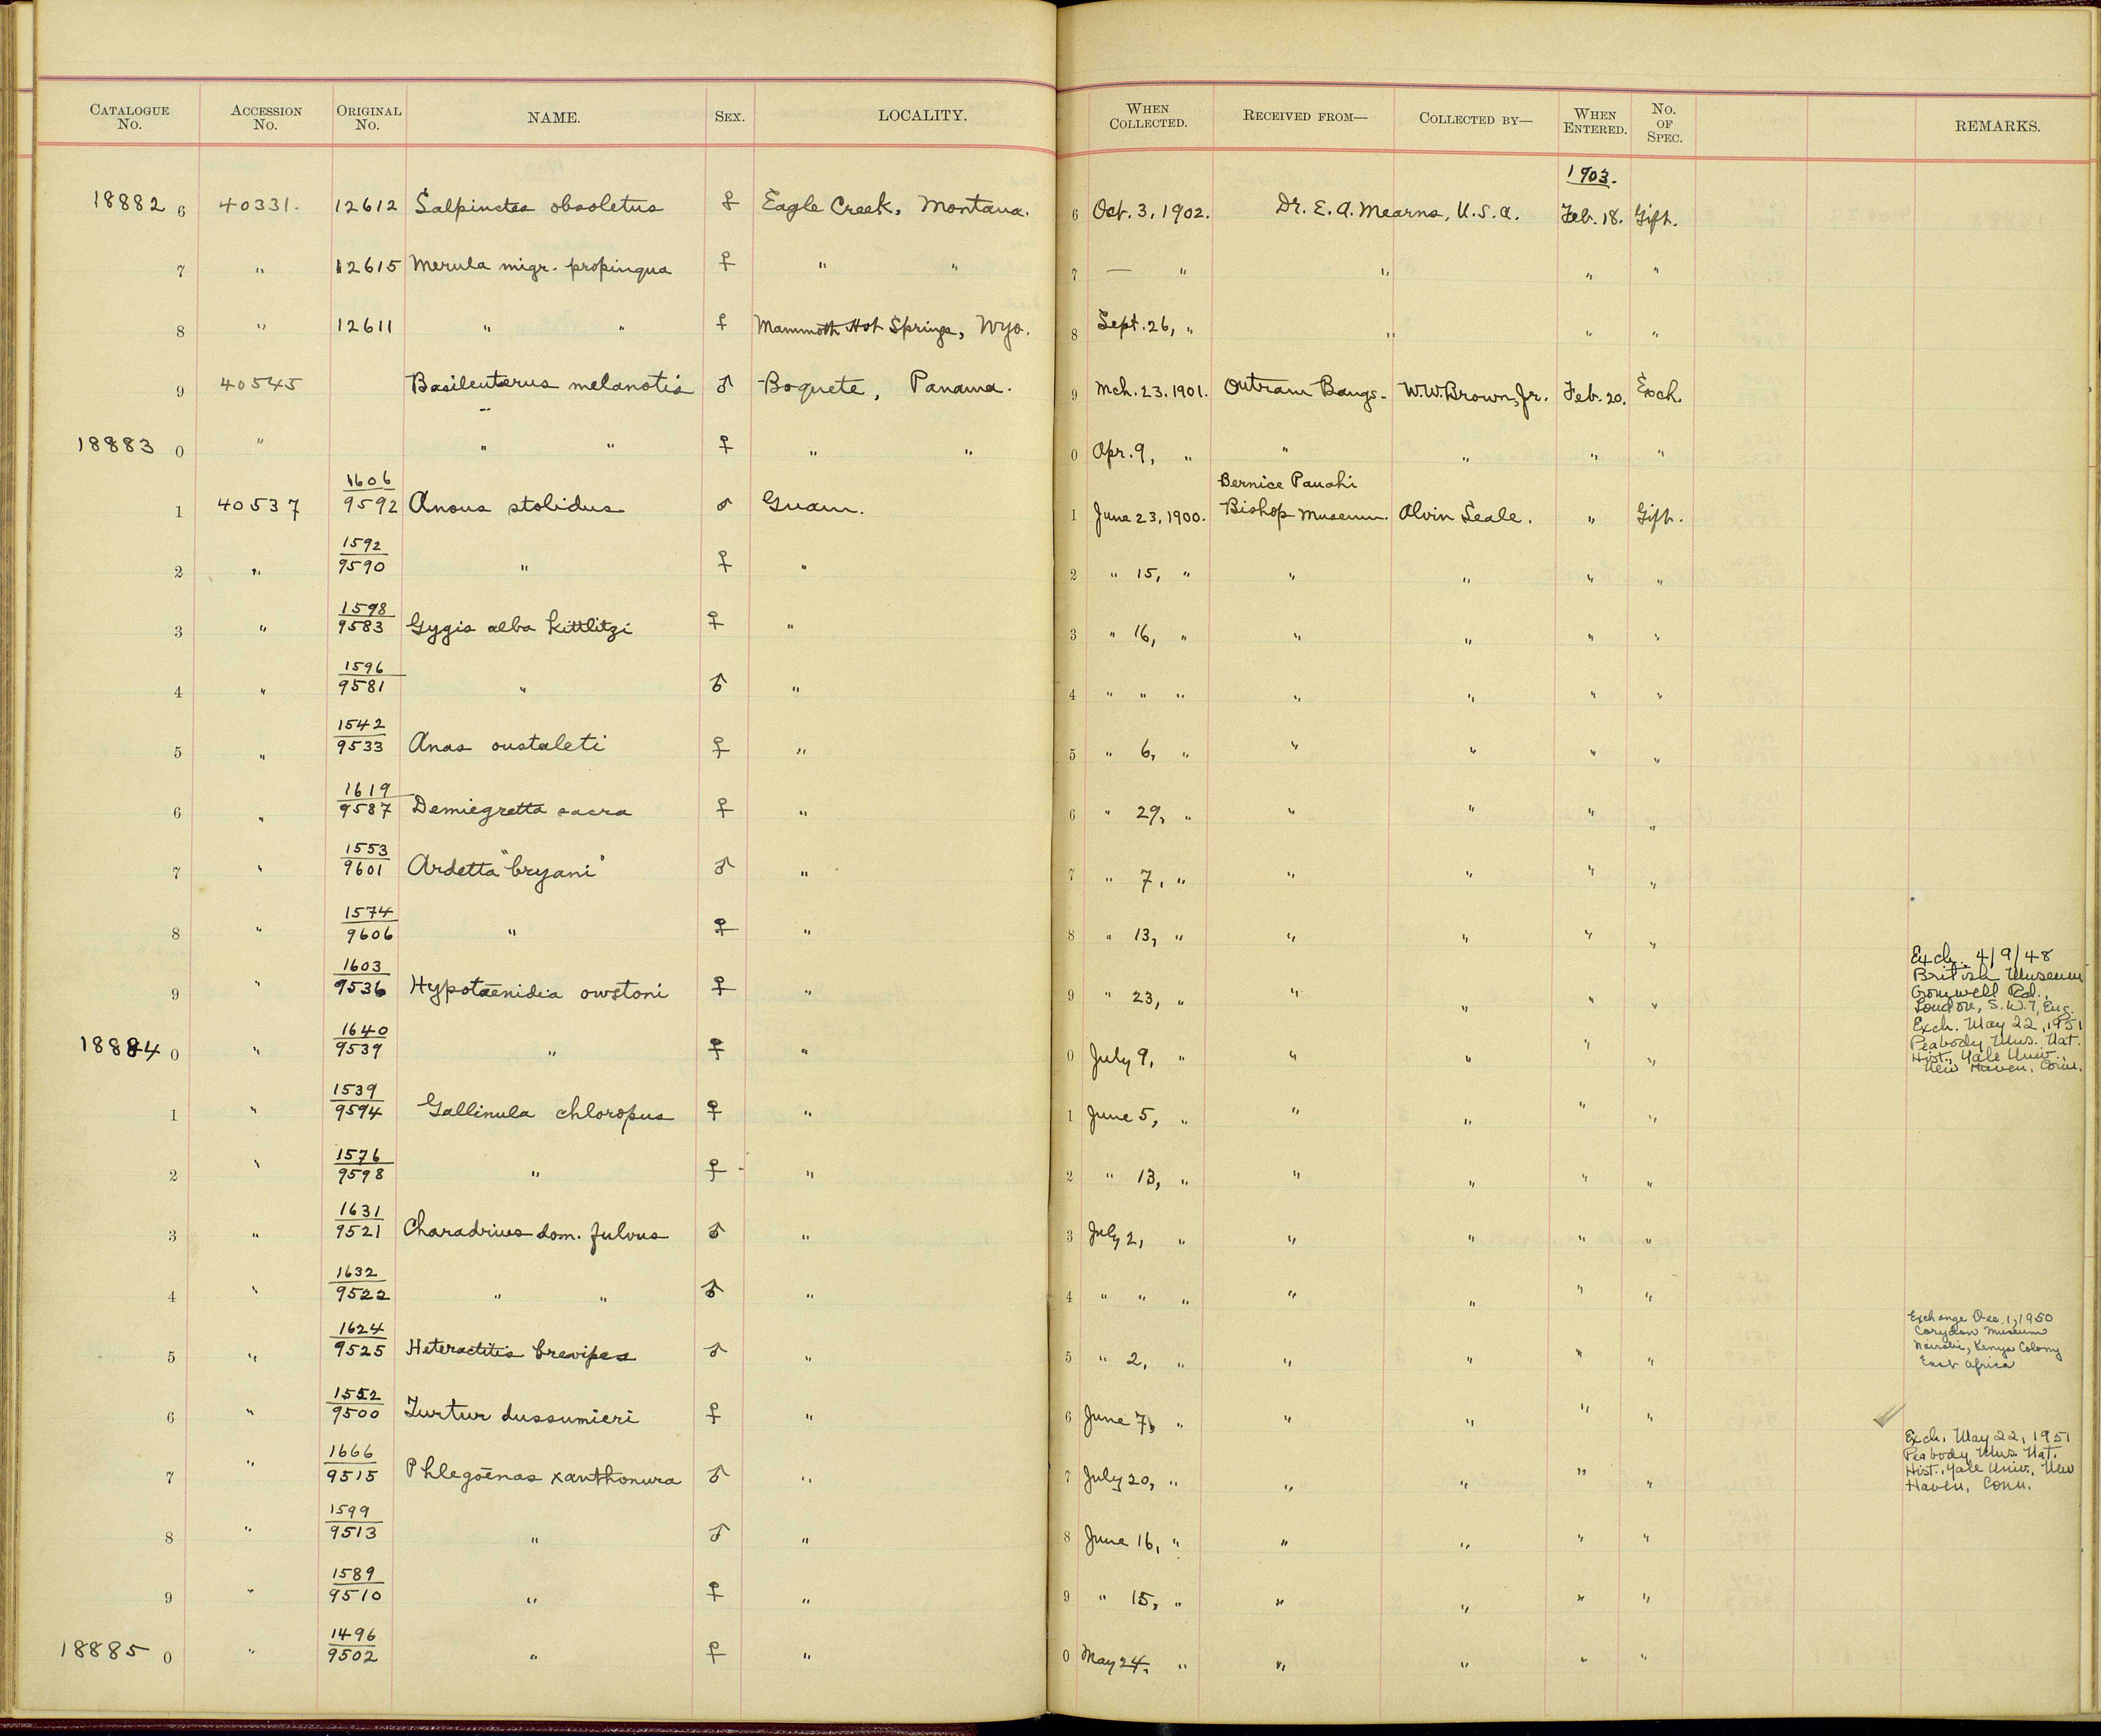 CATALOGUE No. ACCESSION No. ORIGINAL No. NAME. SEX. LOCALITY. WHEN COLLECTED. RECEIVED FROM— COLLECTED BY— WHEN ENTERED. No. OF SPEC. REMARKS.
1903.
18882 6 40331. 12612 Salpinctes obsoletus ♀ Eagle Creek, Montana. 6 Oct. 3, 1902. Dr. E. A. Mearns, U.S.A. Feb. 18. Gift.
7 " 12615 Merula migr. propinqua ♀ " " 7 — " " " "
8 " 12611 " " ♀ Mammoth Hot Springs, Wyo. 8 Sept. 26, " " " "
9 40545 Basileuterus melanotis ♂ Boquete, Panama. 9 Mch. 23. 1901. Outram Bangs. W.W. Brown, Jr. Feb. 20. Exch.
18883 0 " " " ♀ " " 0 Apr. 9, " " " " "
1606 Bernice Pauahi
1 40537 9592 Anous stolidus ♂ Guam. 1 June 23, 1900. Bishop Museum. Alvin Seale. " Gift.
1592
2 " 9590 " ♀ " 2 " 15, " " " " "
1598
3 " 9583 Gygis alba kittlitzi ♀ " 3 " 16, " " " " "
1596
4 " 9581 " ♂ " 4 " " " " " " "
1542
5 " 9533 Anas oustaleti ♀ " 5 " 6, " " " " "
1619
6 " 9587 Demiegretta sacra ♀ " 6 " 29, " " " " "
1553
7 " 9601 Ardetta "bryani" ♂ " 7 " 7, " " " " "
1574
8 " 9606 " ♀ " 8 " 13, " " " " "
Exch. 4/9/48
British Museum
Cromwell Rd.,
London, S.W.7, Eng.
1603
9 " 9536 Hypotaenidia owstoni ♀ " 9 " 23, " " " " "
Exch. May 22, 1951
Peabody Mus. Nat.
Hist., Yale Univ.,
New Haven, Conn.
1640
18884 0 " 9539 " ♀ " 0 July 9, " " " " "
1539
1 " 9594 Gallinula chloropus ♀ " 1 June 5, " " " " "
1576
2 " 9598 " ♀ " 2 " 13, " " " " "
1631
3 " 9521 Charadrius dom. fulvus ♂ " 3 July 2, " " " " "
1632
4 " 9522 " " ♂ " 4 " " " " " " "
Exchange Dec. 1, 1950
Corydon Museum
Nairobi, Kenya Colony
East Africa
1624
5 " 9525 Heteractitis brevipes ♂ " 5 " 2, " " " " "
1552
6 " 9500 Turtur dussumieri ♀ " 6 June 7, " " " " "
Exch. May 22, 1951
Peabody Mus. Nat.
Hist., Yale Univ., New
Haven, Conn.
1666
7 " 9515 Phlegoenas xanthonura ♂ " 7 July 20, " " " " "
1599
8 " 9513 " ♂ " 8 June 16, " " " " "
1589
9 " 9510 " ♀ " 9 " 15, " " " " "
1496
18885 0 " 9502 " ♀ " 0 May 24, " " " " "